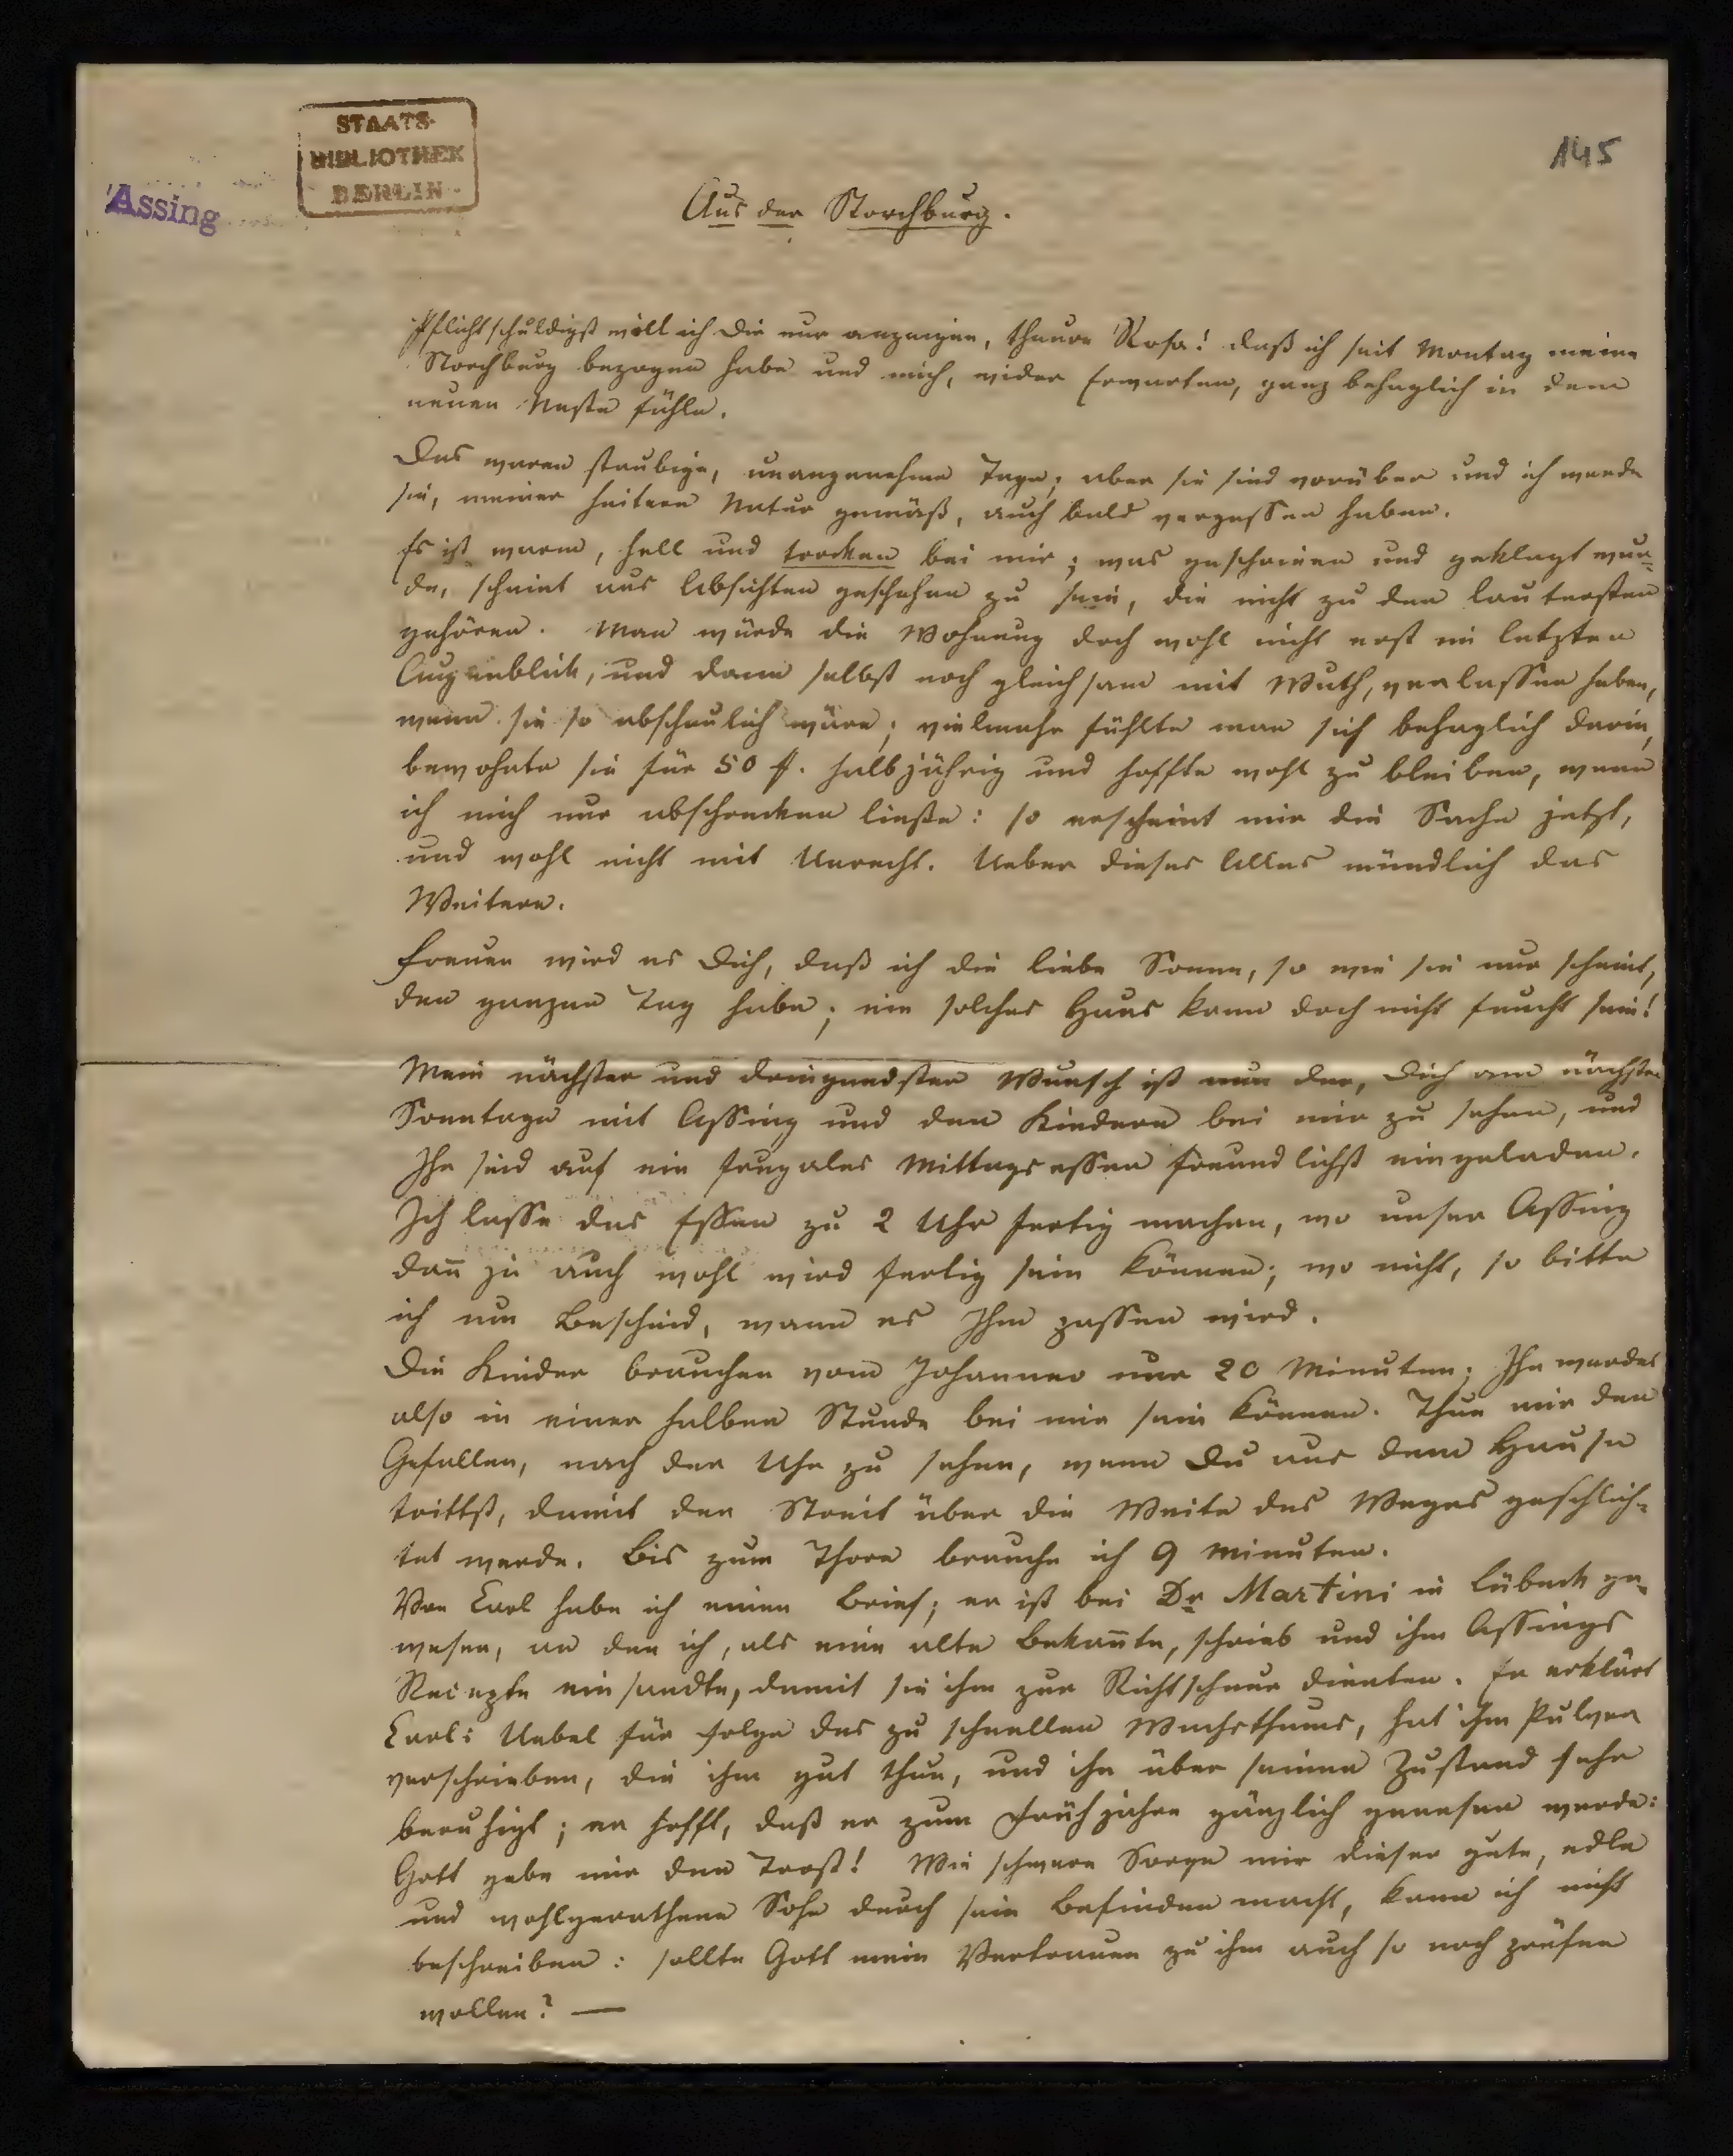 STAATS-
BIBLIOTHEK
BERLIN
Assing
145
Aus der Storchburg.
Pflichtschuldigst will ich Dir nur anzeigen, theure Rosa! daß ich seit Montag meine
Storchburg bezogen habe und mich, wider Erwarten, ganz behaglich in dem
neuen Neste fühle.
Das waren staubige, unangenehme Tage; aber sie sind vorüber und ich werde
sie, meiner heitern Natur gemäß, auch bald vergessen haben.
Es ist warm, hell und trocken bei mir; was geschrieen und geklagt wur-
de, scheint aus Absichten geschehen zu sein, die nicht zu den lautersten
gehören. Man würde die Wohnung doch wohl nicht erst im letzten
Augenblick, und dann selbst noch gleichsam mit Wuth, verlassen haben,
wenn sie so abscheulich wäre; vielmehr fühlte man sich behaglich darin,
bewohnte sie für 50 f. halbjährig und hoffte wohl zu bleiben, wenn
ich mich nur abschrecken ließe: so erscheint mir die Sache jetzt,
und wohl nicht mit Unrecht. Ueber dieses Alles mündlich das
Weitere.
Freuen wird es Dich, daß ich die liebe Sonne, so wie sie nur scheint,
den ganzen Tag habe; ein solches Haus kann doch nicht feucht sein!
Mein nächster und dringendster Wunsch ist nun der, Dich am nächsten
Sonntage mit Assing und den Kindern bei mir zu sehen, und
Ihr seid auf ein frugales Mittagsessen freundlichst eingeladen.
Ich lasse das Essen zu 2 Uhr fertig machen, wo unser Assing
dan̄ ja auch wohl wird fertig sein können; wo nicht, so bitte
ich um Bescheid, wann es Ihm passen wird.
Die Kinder brauchen vom Johanneo nur 20 Minuten; Ihr werdet
also in einer halben Stunde bei mir sein können. Thue mir den
Gefallen, nach der Uhr zu sehen, wenn Du aus dem Hause
trittst, damit der Streit über die Weite des Weges geschlich-
tet werde. Bis zum Thore brauche ich 9 Minuten.
Von Carl habe ich einen Brief; er ist bei Dr Martini in Lübeck ge-
wesen, an den ich, als eine alte Bekan̄te, schrieb und ihm Assings
Recepte einsandte, damit sie ihm zur Richtschnur dienten. Er erklärt
Carls Uebel für Folge des zu schnellen Wachsthums, hat ihm Pulver
verschrieben, die ihm gut thun, und ihn über seinen Zustand sehr
beruhigt; er hofft, daß er zum Frühjahre gänzlich genesen werde:
Gott gebe mir den Trost! Wie schwere Sorge mir dieser gute, edle
und wohlgerathene Sohn durch sein Befinden macht, kann ich nicht
beschreiben: sollte Gott mein Vertrauen zu ihm auch so noch prüfen
wollen? —